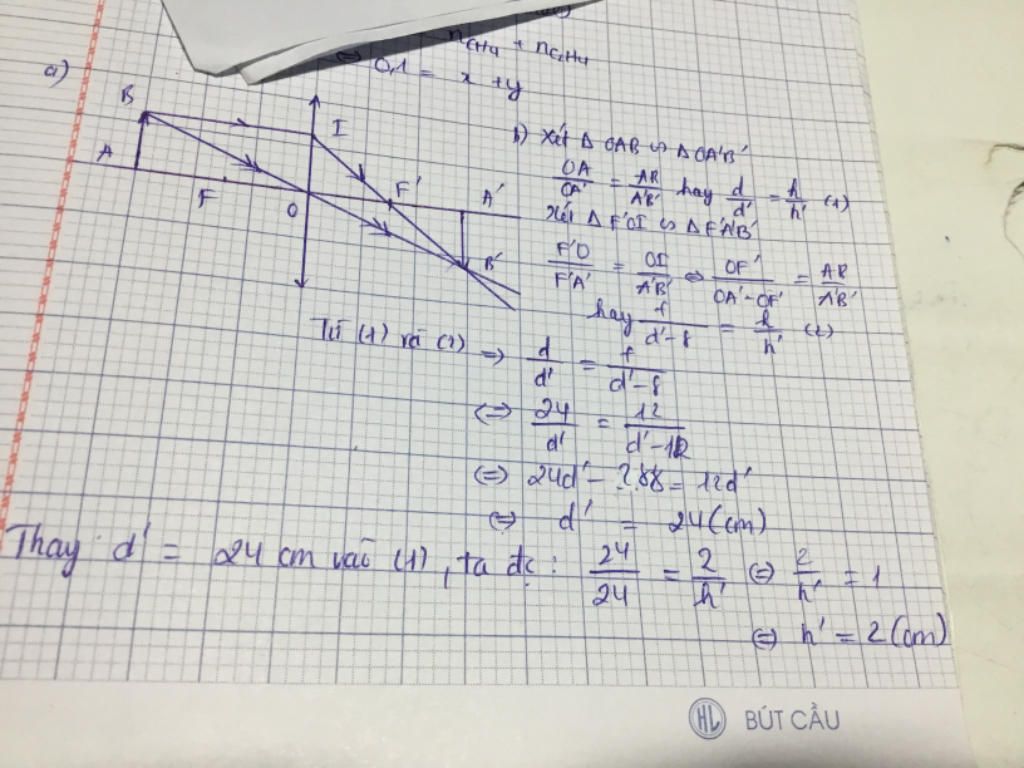 nCH4 + nC2H4
⇔ 0,1 = x + y
a)
B
I
A
F
O
F'
A'
B'
b) Xét Δ OAB ∽ Δ OA'B'
OA/OA' = AB/A'B' hay d/d' = h/h' (1)
Xét Δ F'OI ∽ Δ F'A'B'
F'O/F'A' = OI/A'B' ⇔ OF'/OA'-OF' = AB/A'B'
hay f/d'-f = h/h' (2)
Từ (1) và (2) ⇒ d/d' = f/d'-f
⇔ 24/d' = 12/d'-12
⇔ 24d' - 288 = 12d'
⇔ d' = 24 (cm)
Thay d' = 24 cm vào (1), ta đc: 24/24 = 2/h' ⇔ 2/h' = 1
⇔ h' = 2 (cm)
HL BÚT CẦU